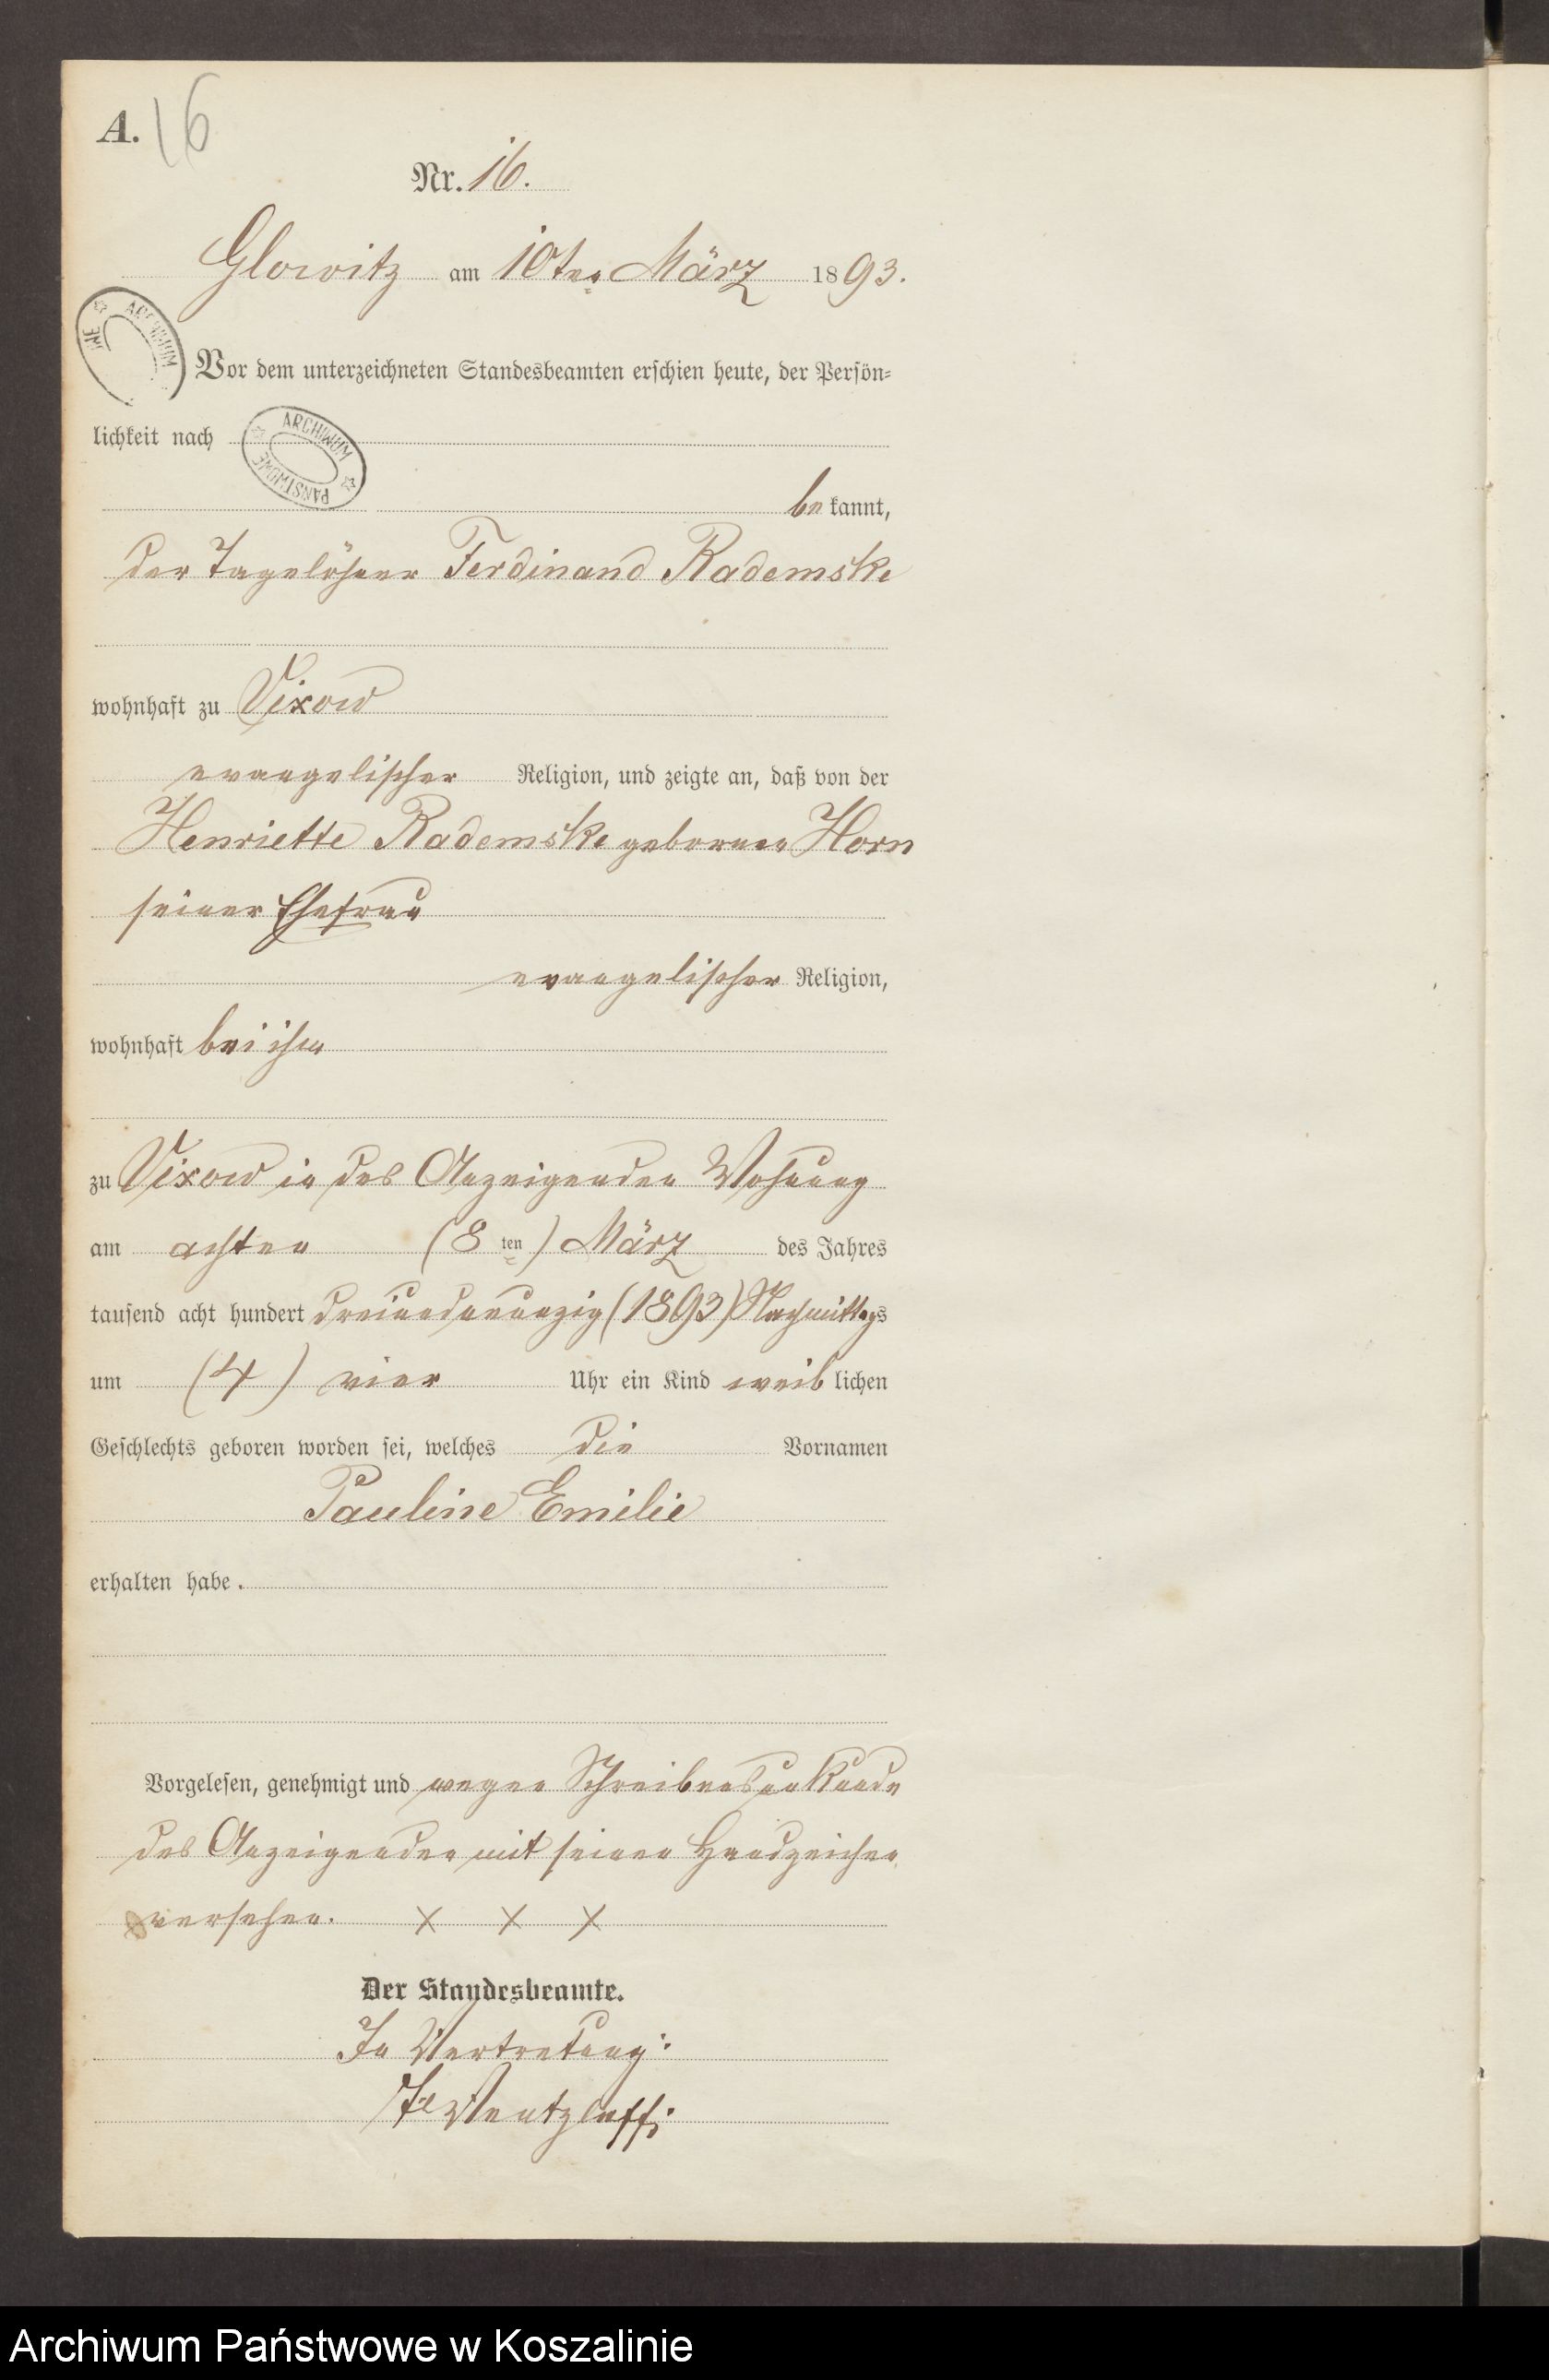 A. 16
Nr. 16.
Glowitz am 10ten März 1893.
ARCHIWUM
Vor dem unterzeichneten Standesbeamten erschien heute, der Persön-
lichkeit nach
ARCHIWUM PAŃSTWOWE
bekannt,
der Tagelöhner Ferdinand Rademske
wohnhaft zu Vixow
evangelischer Religion, und zeigte an, daß von der
Henriette Rademske geborenen Horn
seiner Ehefrau
evangelischer Religion,
wohnhaft bei ihm
zu Vixow in des Anzeigenden Wohnung
am achten (8 ten) März des Jahres
tausend acht hundert dreiundneunzig (1893) Nachmittags
um (4) vier Uhr ein Kind weiblichen
Geschlechts geboren worden sei, welches die Vornamen
Pauline Emilie
erhalten habe.
Vorgelesen, genehmigt und wegen Schreibensunkunde
des Anzeigenden mit seinen Handzeichen
versehen. X X X
Der Standesbeamte.
In Vertretung:
Wentzlaff.
Archiwum Państwowe w Koszalinie